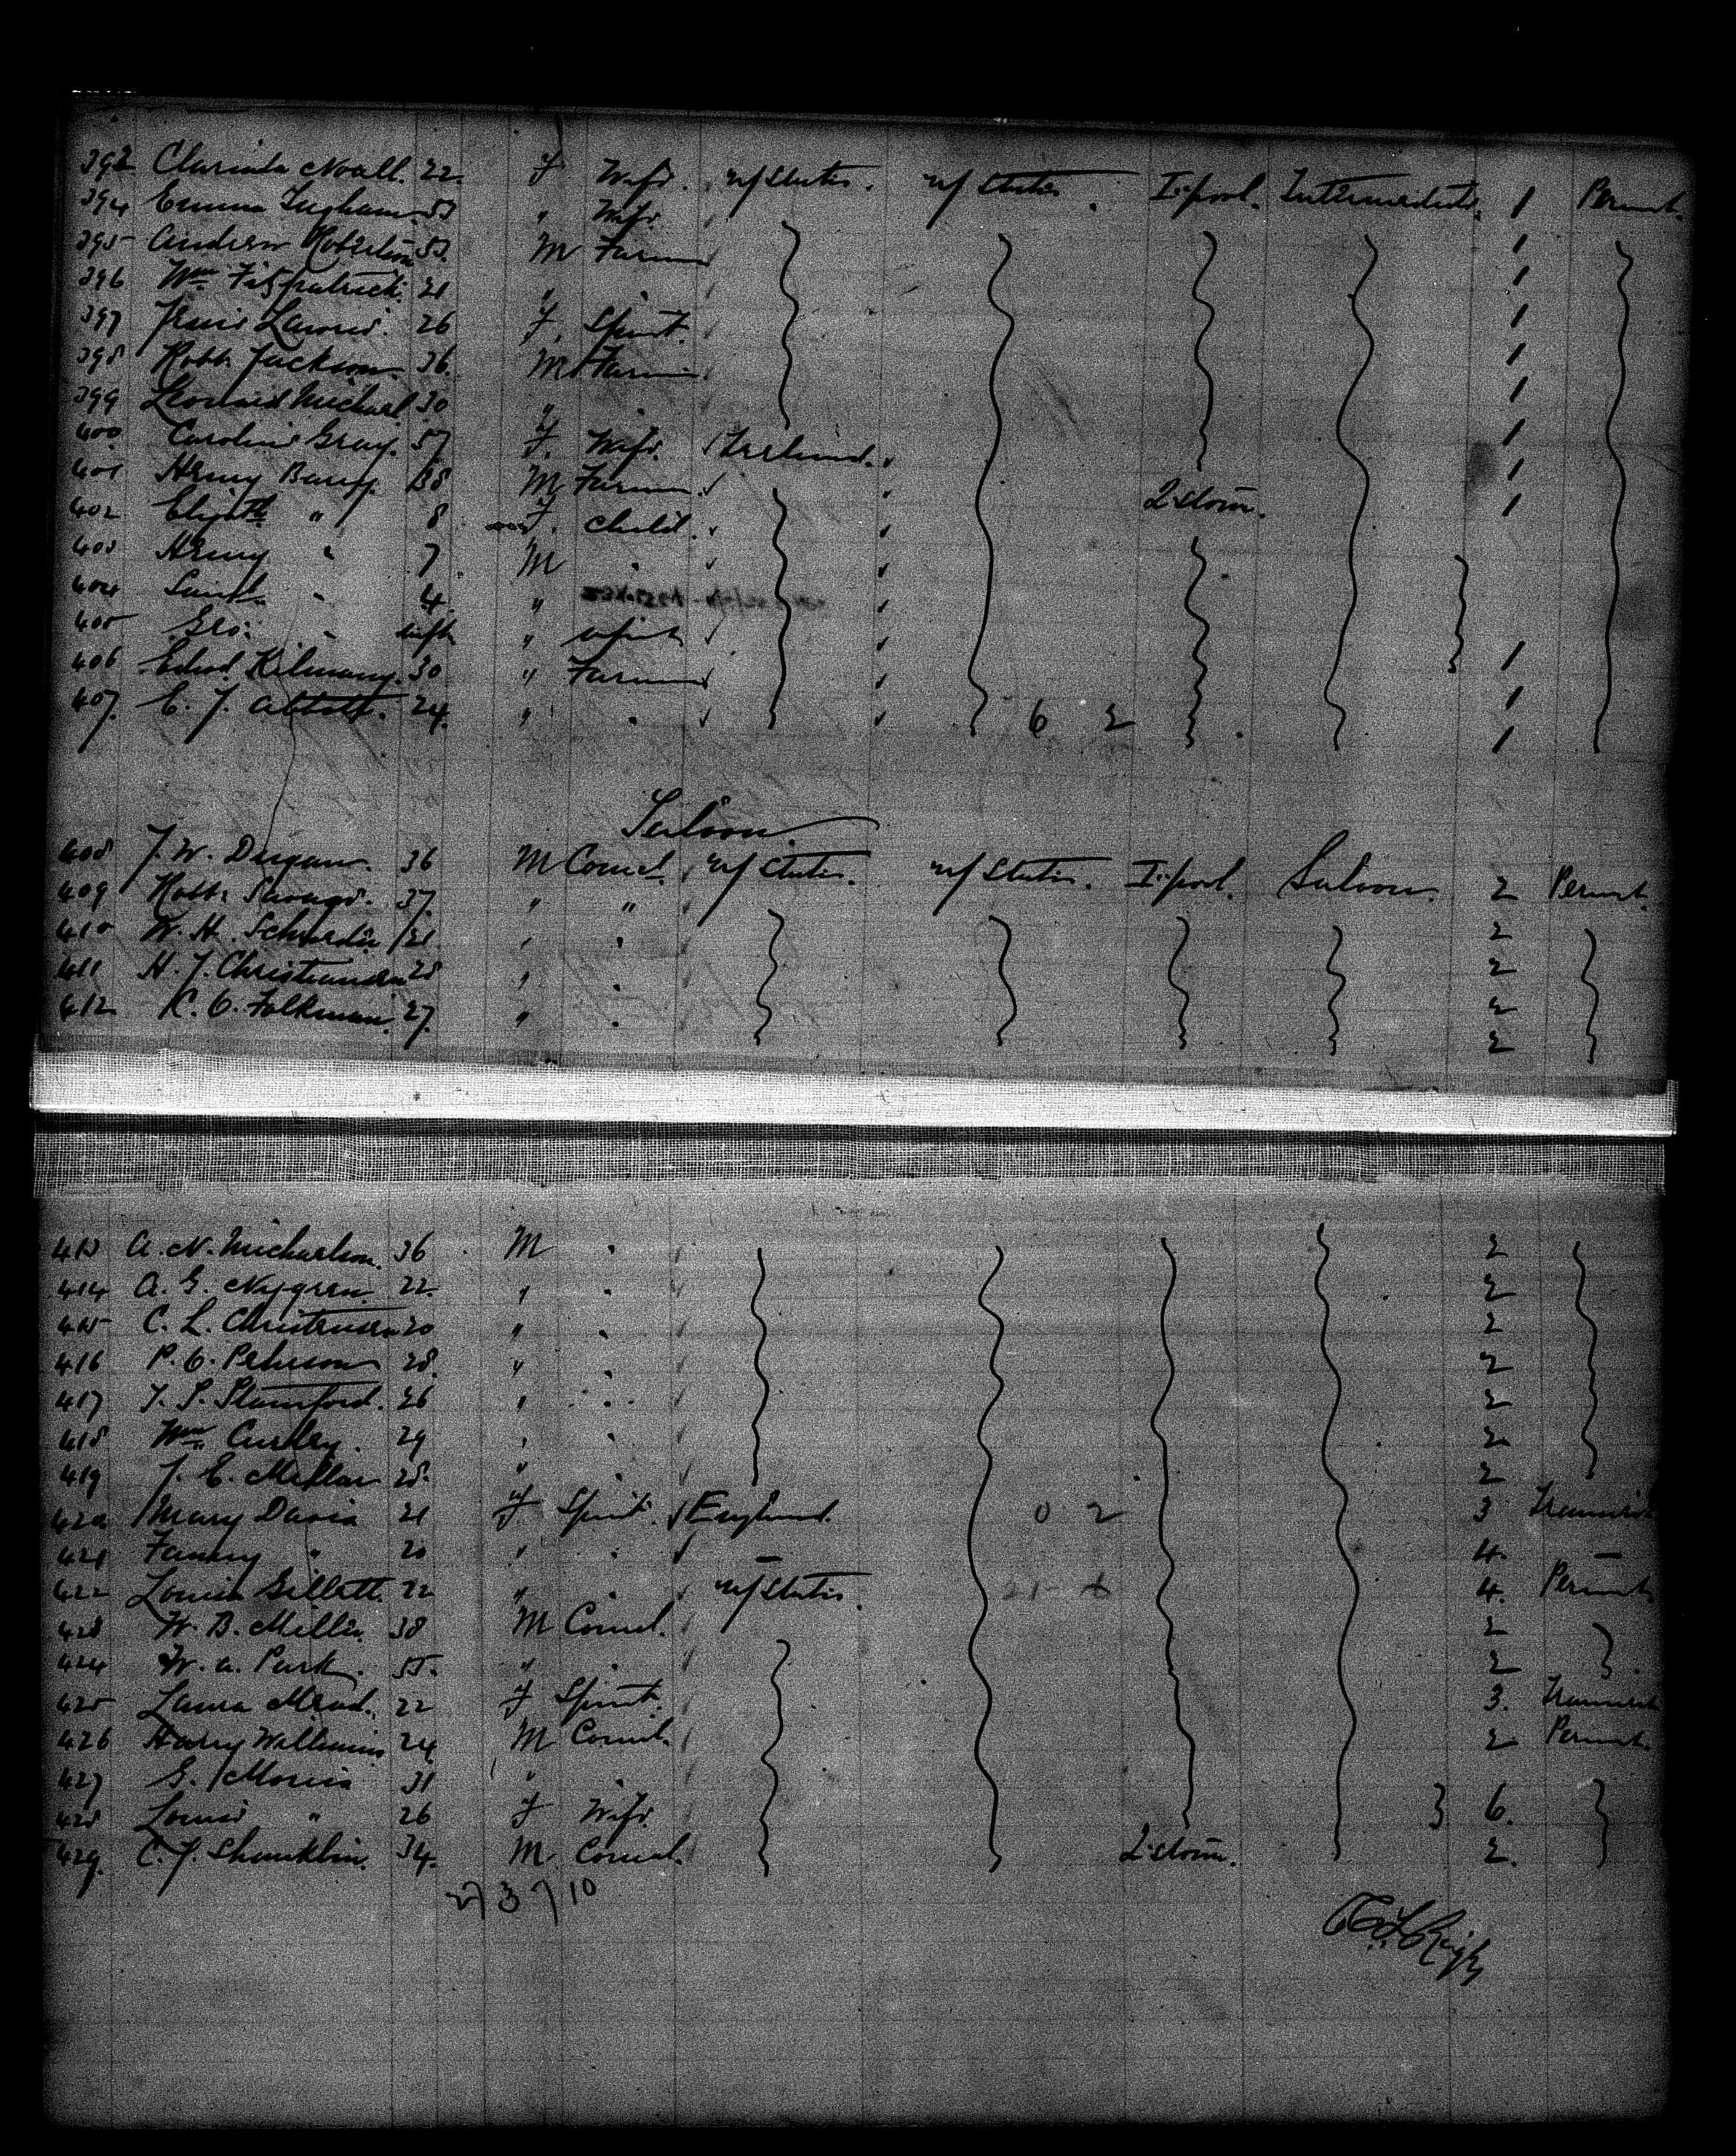 393 Clarinda Noall. 22. F Wife. U/States. U/States. L'pool. Intermediate. 1 Permt.
394 Emma Ingham. 53 " Wife. 1
395 Andrew Robertson 53. M Farmer 1
396 Wm Fitzpatrick. 21 " . 1
397 Lawrie. 26 F. Spinst. 1
398 Robt. Jackson. 36. M Farmer. 1
399 Leonard Michael 30 " . 1
400 Caroline Gray. 57 F. Wife. Ireland. 1
401 Henry Barry. 38 M Farmer. Q.stown. 1
402 Elizath " 8 F. Child.
403 Henry " 7 M .
404 " 4. "
405 Geo: " Infts " Infant
406 Edwd. Kilmany. 30 " Farmer 1
407. E. J. Abbott. 24. " . 6 2 1
Saloon
408 J. W. Dugan. 36 M Comcl. U/States. U/States. L'pool. Saloon. 2 Permt.
409 Robt. Savage. 37. " " 2
410 W. H. Schroder 21 " " 2
411 H. J. Christiansen 28 " . 2
412 K. O. Folkman. 27. " . 2
413 A. N. Michaelson. 36 M . 2
414 A. G. Nygren. 22. " . 2
415 C. L. Christensen 20 " . 2
416 P. O. Pehrson 28. " . 2
417 J. P. Stamford. 26 " . 2
418 Wm Curley. 29 " . 2
419 J. E. Millar 28. " . 2
420 Mary Davis 21 F. Spinst. England. 0 2 3 Transit
421 Fanny " 20 " . 4. –
422 Louisa Gillett. 22 " . U/States. 4. Permt.
423 W. B. Miller. 38 M Comcl. 2
424 W. A. Park. 55. " . 2
425 Laura Mead. 22 F Spinst. 3. Transit
426 Harry Williams 24 M Comcl. 2 Permt.
427 G. Morris 31 " . 6.
428 Louise " 26 F Wife.
429. C. J. Shanklin. 34. M. Comcl. Q.stown. 2.